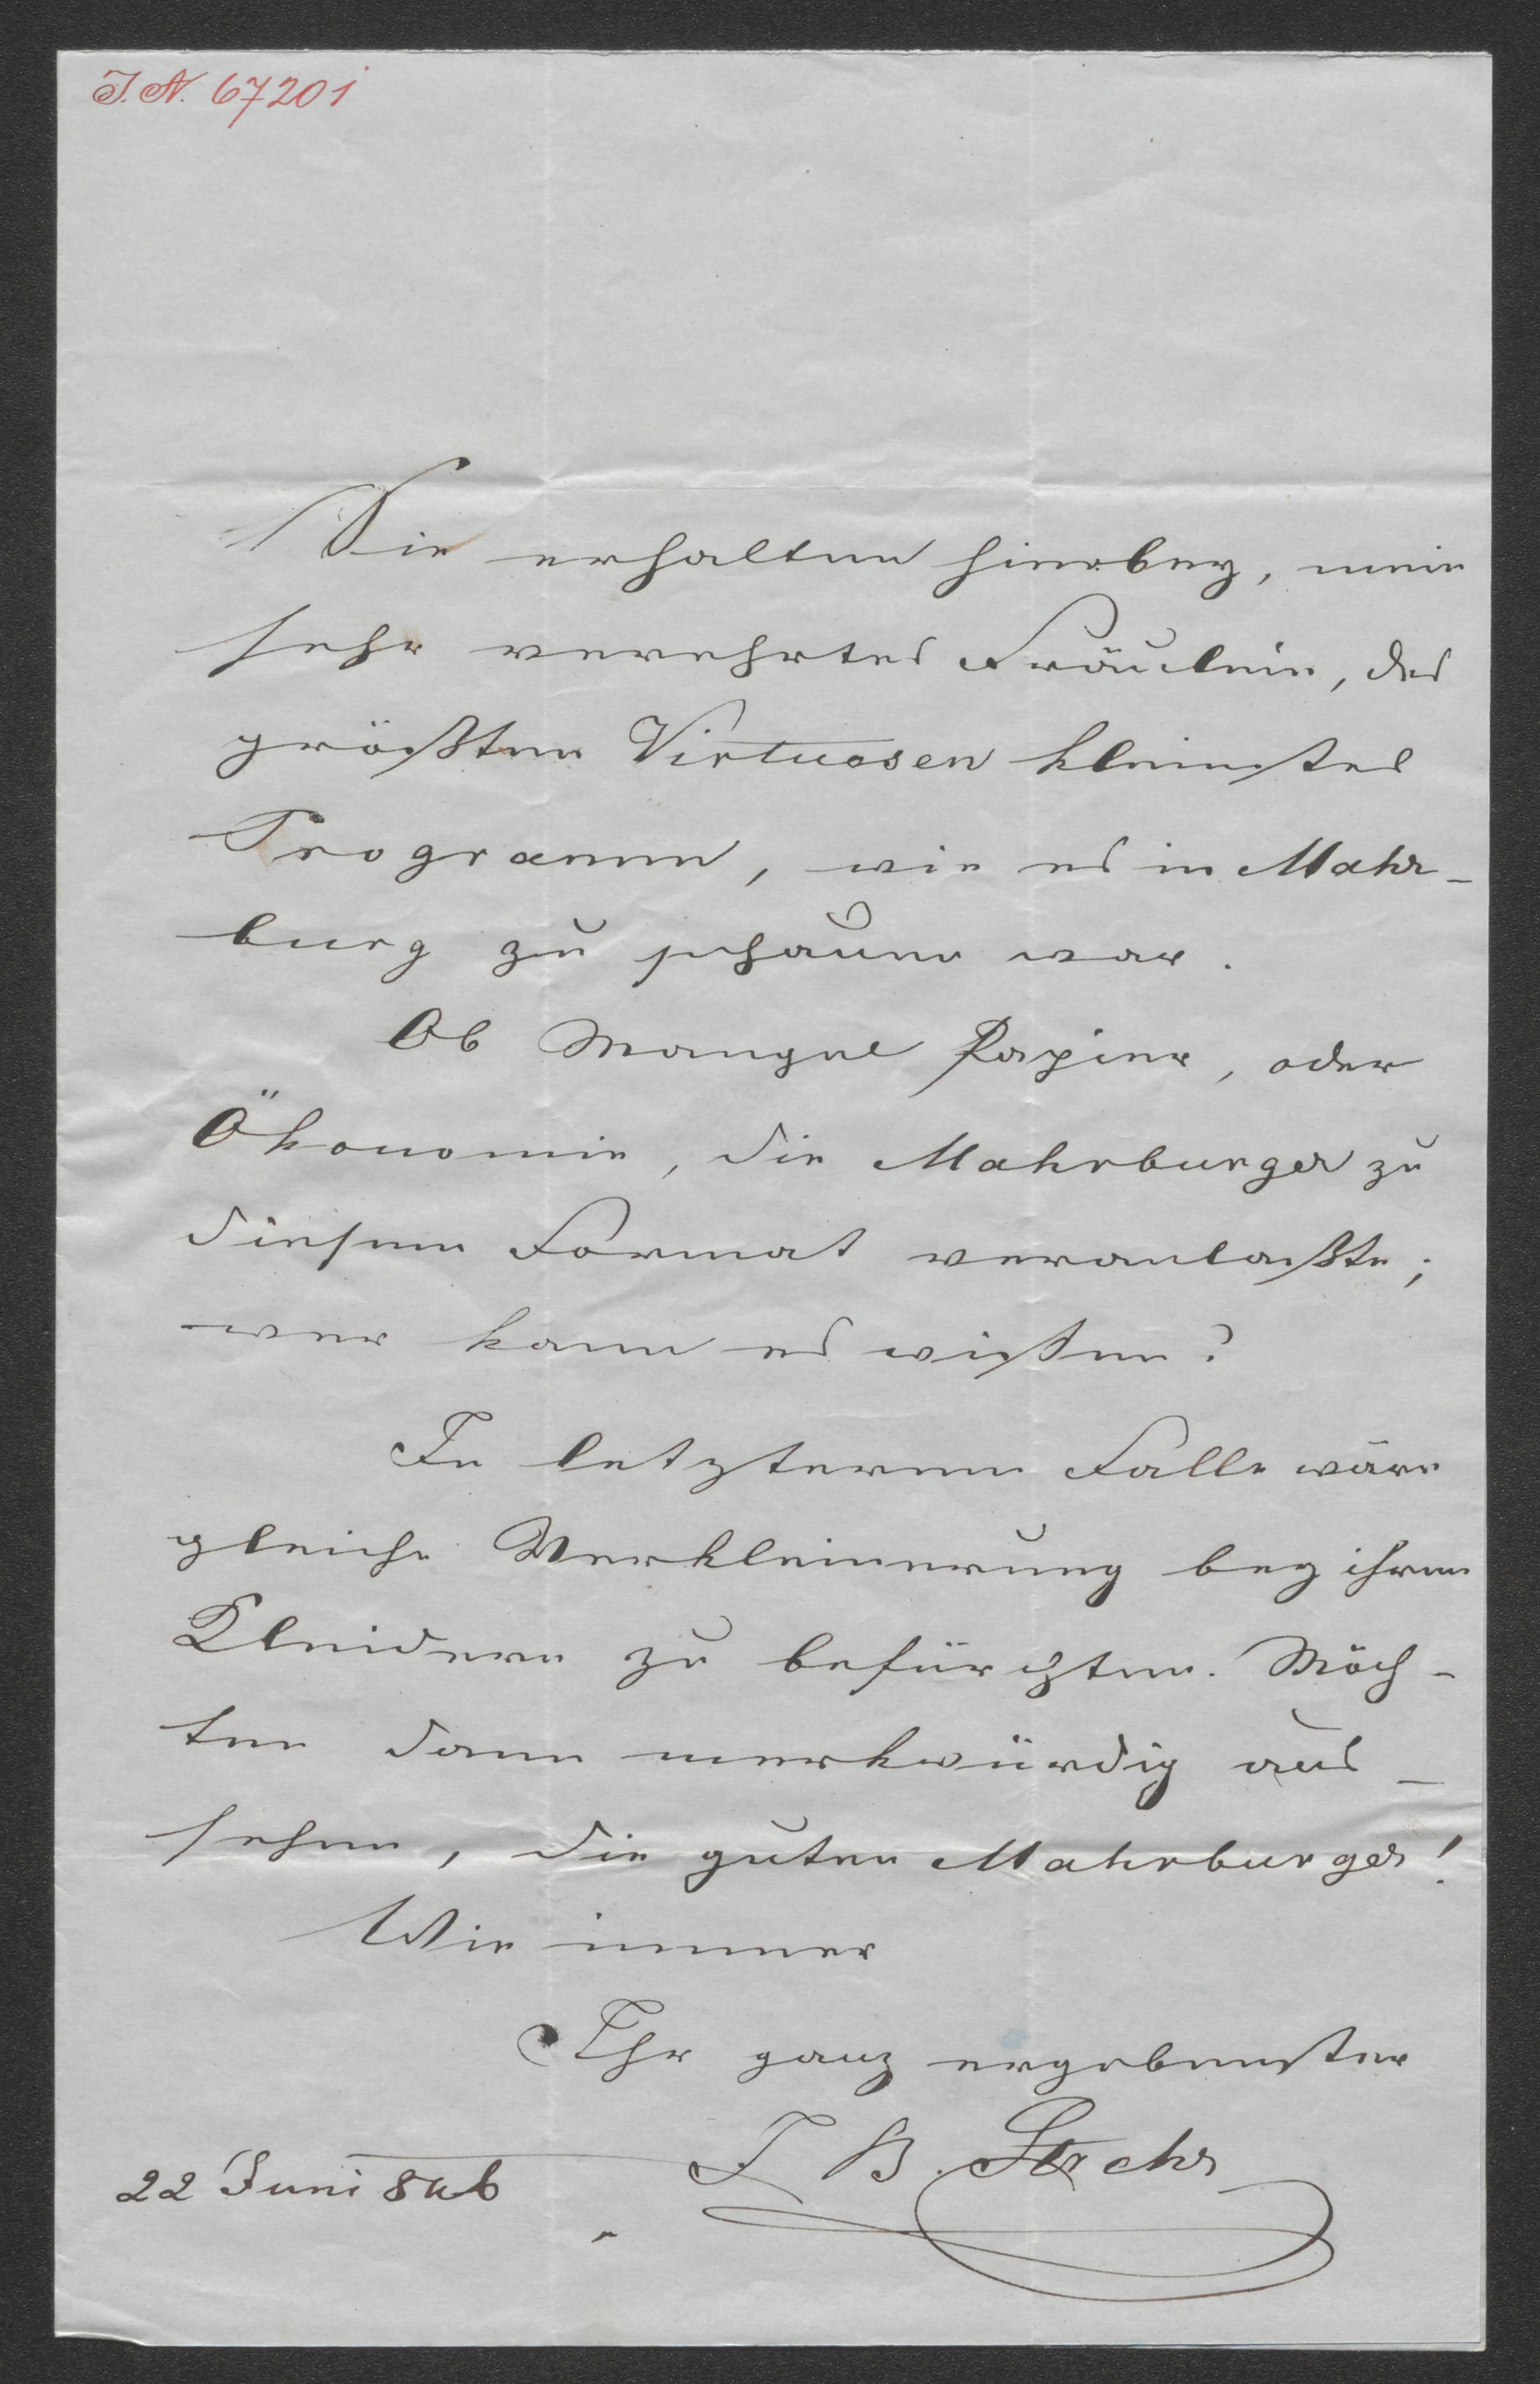 J.N. 67201
Sie erhalten hierbey, mein
sehr verehrtes Fräulein, des
größten Virtuosen kleinstes
Programm, wie es in Mahr-
burg zu schauen war.
Ob Mangel Papier, oder
Ökonomie, die Mahrburger zu
diesem Format veranlaßte;
wer kann es wißen?
In letzterem Falle wäre
gleiche Verkleinerung bey ihren
Kleidern zu befürchten. Möch-
ten dann merkwürdig aus-
sehen, die guten Mahrburger!
Wie immer
Ihr ganz ergebenster
J B.
22 Juni 846